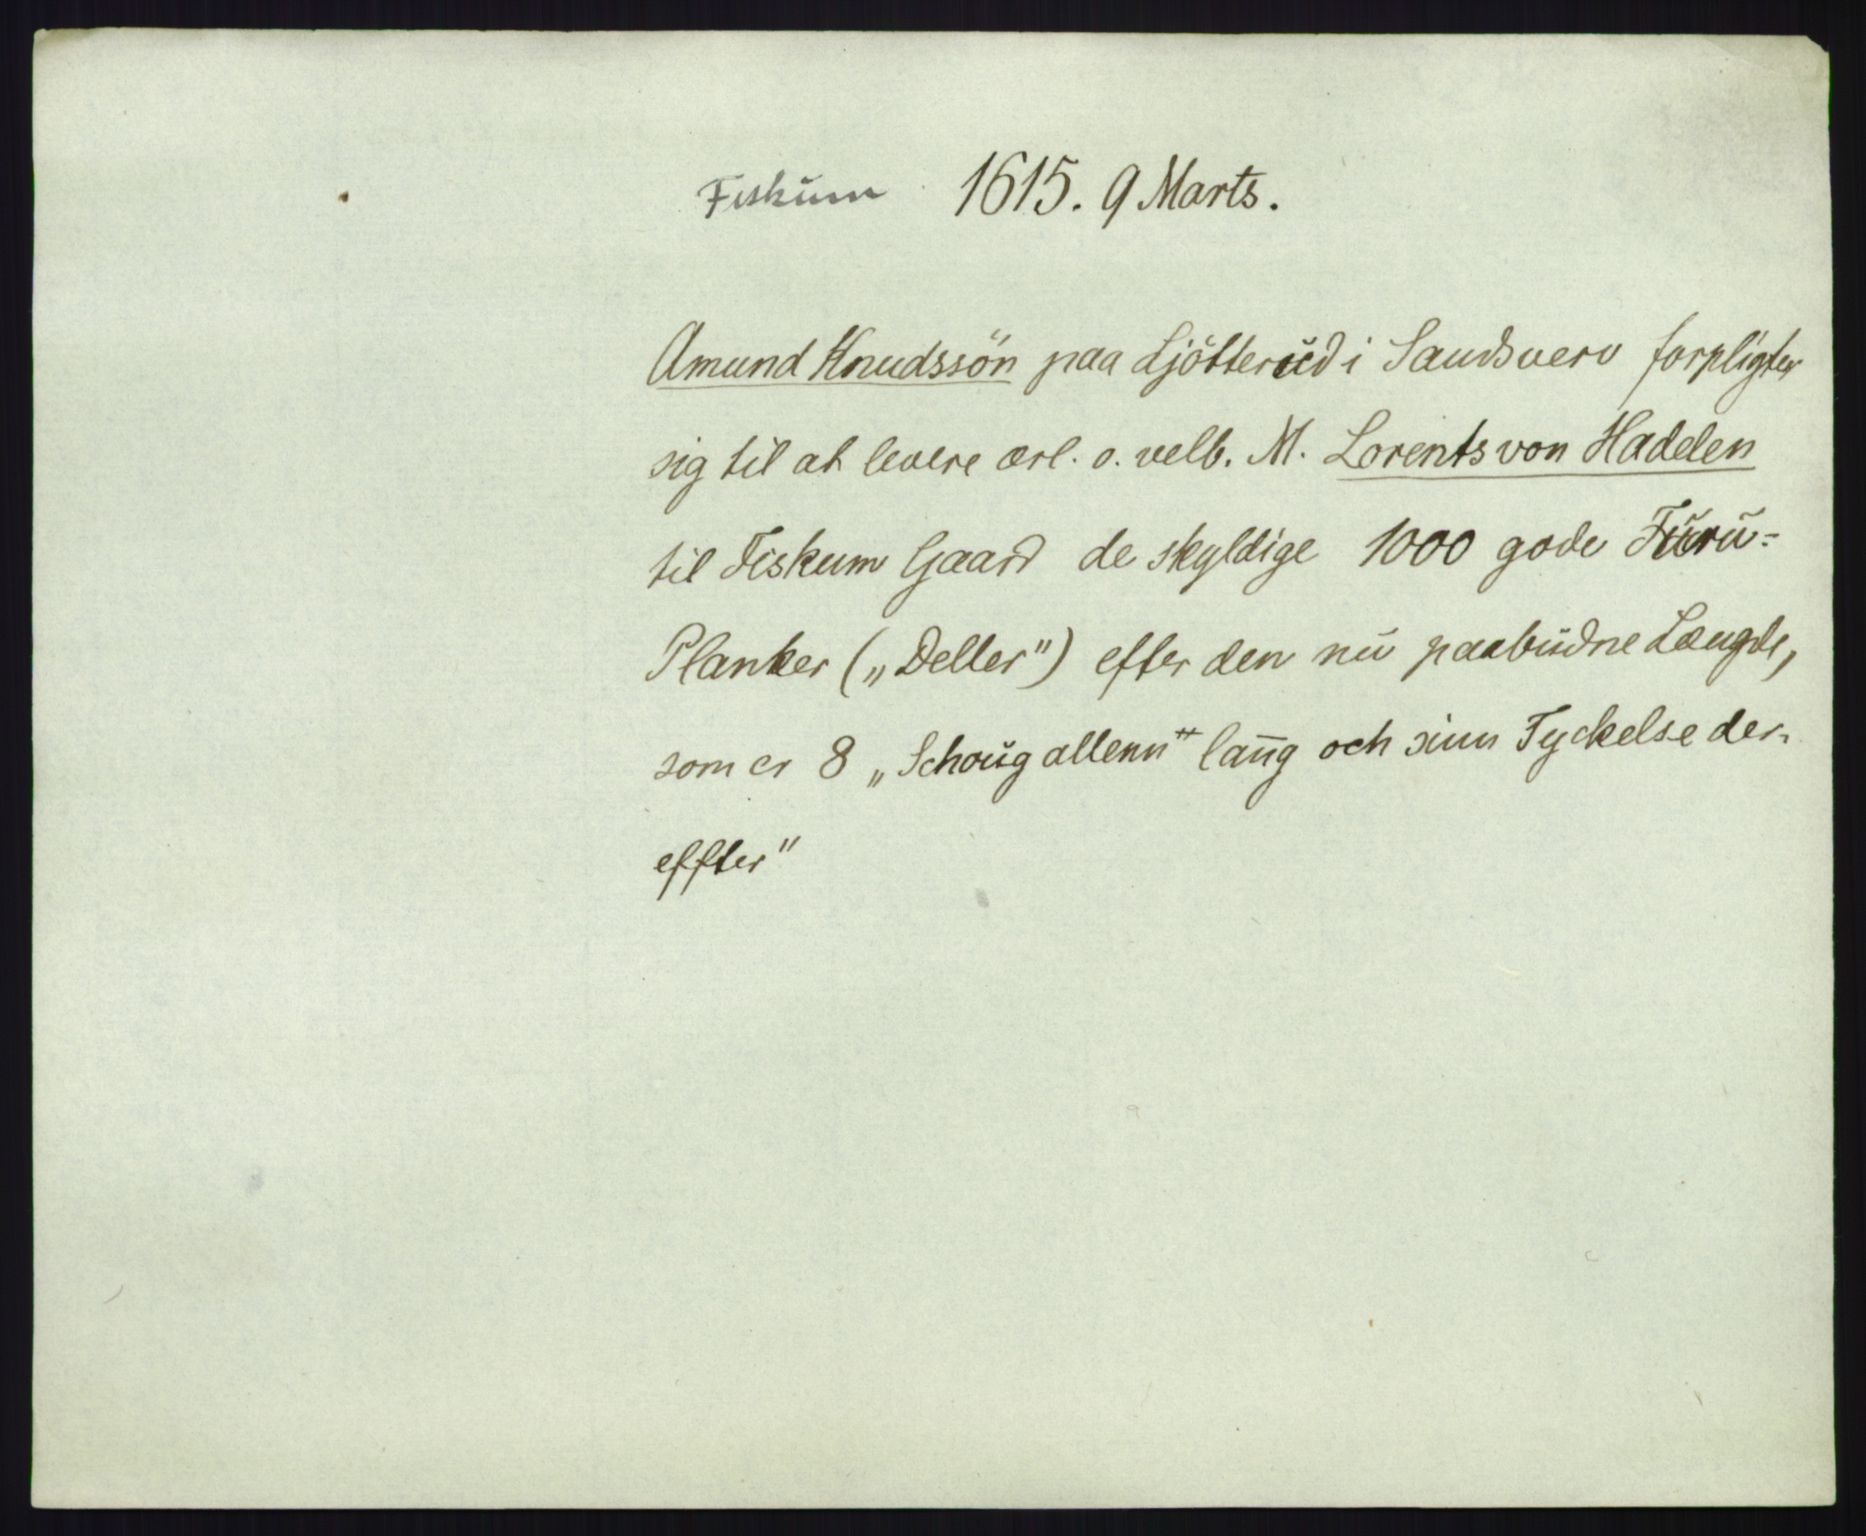 Fiskum 1615. 9 Marts.
Amund Knudssön paa Ljötterud i Sandsverv forpligter
sig til at levere ærl. o. velb. M. Lorents von Hadelen
til Fiskum Gaard de skyldige 1000 gode Furu-
Planker („Deller") efter den nu paabudne Længde,
som er 8 „Schoug allenn" lang och sinn Tyckelse der-
effter"